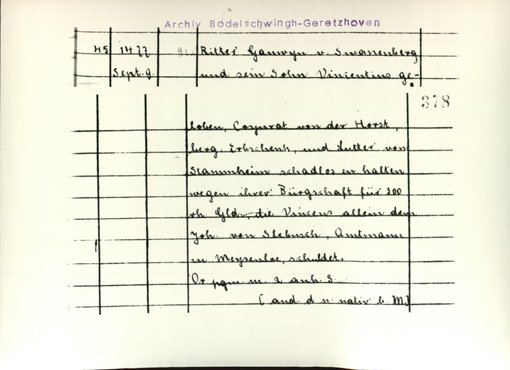 Archiv Bodelschwingh-Geretzhoven
45 1477 Ritter Gauwyn v. Swanenberg
Sept. 9. und sein Sohn Vincentius ge-
378
loben, von der Horst,
berg. Erbschenk, und Lutter von
Stammheim schadlos er halten
wegen ihrer Bürgschaft für 300
rh. Gld., die Vincens allein dem
Joh. von Slebusch, Amtmann
in Meysenloe, schuldet.
Or. pgm. m. 2 anh. S.
( and. d. n. nativ. b. M.)